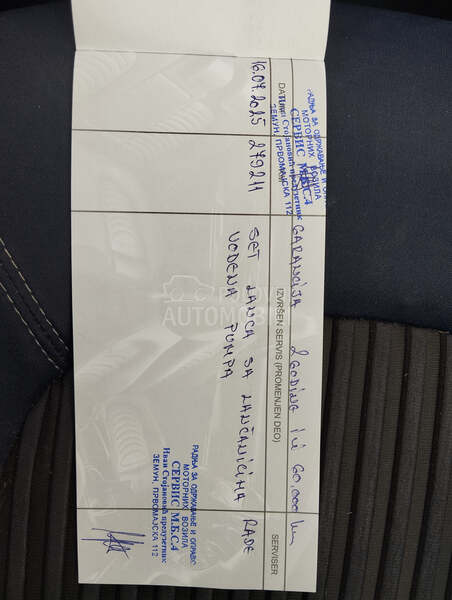 DATUM
IZVRŠEN SERVIS (PROMENJEN DEO)
SERVISER
РАДЊА ЗА ОДРЖАВАЊЕ И ОПРАВ
МОТОРНИХ ВОЗИЛА
СЕРВИС М.Б.С.4
Иван Стојановић предузетник
ЗЕМУН, ПРВОМАЈСКА 112
GARANCIJA 2 GODINE ILI 60.000 km
16.07.2025 279211 SET LANCA SA LANČANICIMA RADE
VODENA PUMPA
РАДЊА ЗА ОДРЖАВАЊЕ И ОПРАВС
МОТОРНИХ ВОЗИЛА
СЕРВИС М.Б.С.4
Иван Стојановић предузетник
ЗЕМУН, ПРВОМАЈСКА 112
AUTOMOB